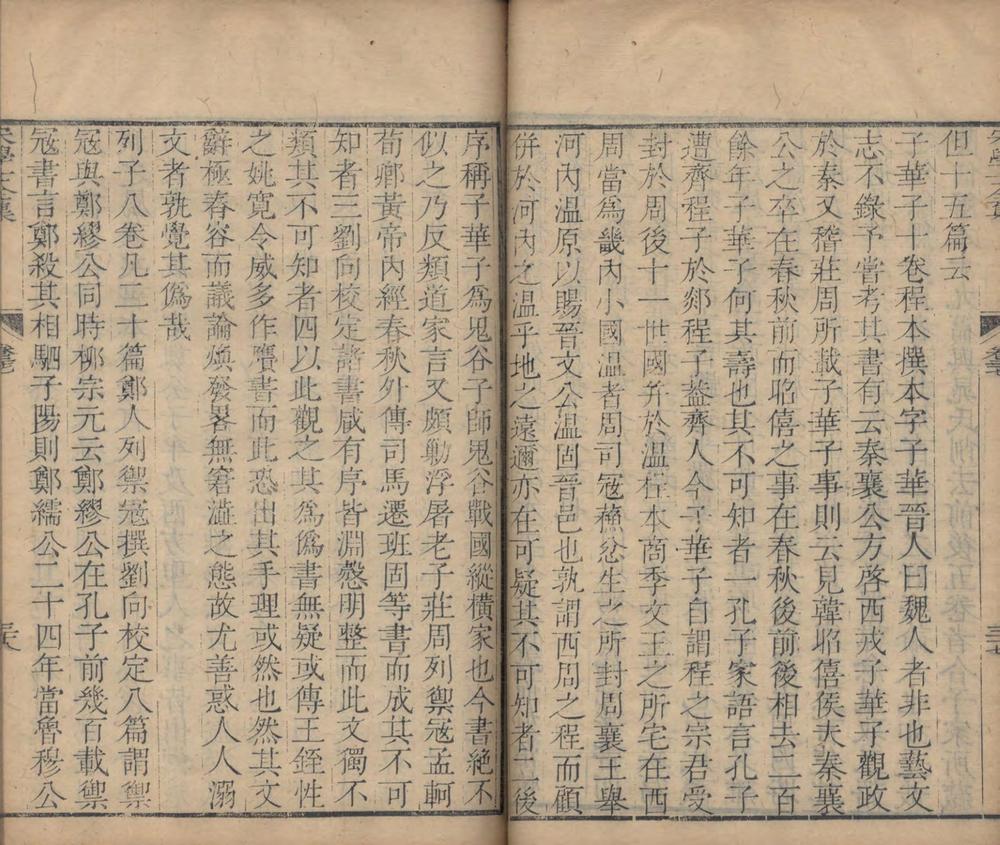 但十五篇云
子華子十卷程本撰本字子華晉人曰魏人者非也藝文
志不錄予嘗考其書有云秦襄公方啓西戎子華子觀政
於秦又稽莊周所載子華子事則云見韓昭僖侯夫秦襄
公之卒在春秋前而昭僖之事在春秋後前後相去二百
餘年子華子何其壽也其不可知者一孔子家語言孔子
遭齊程子於郯程子蓋齊人今子華子自謂程之宗君受
封於周後十一世國并於溫程本商季文王之所宅在西
周當爲畿內小國溫者周司寇蘇忿生之所封周襄王舉
河內溫原以賜晉文公溫固晉邑也孰謂西周之程而顧
併於河內之溫乎地之遠邇亦在可疑其不可知者二後
序稱子華子爲鬼谷子師鬼谷戰國縱橫家也今書絕不
似之乃反類道家言又頗勦浮屠老子莊周列禦寇孟軻
荀卿黃帝內經春秋外傳司馬遷班固等書而成其不可
知者三劉向校定諸書咸有序皆淵慤明整而此文獨不
類其不可知者四以此觀之其爲僞書無疑或傳王銍性
之姚寬令威多作贗書而此恐出其手理或然也然其文
辭極舂容而議論煥發畧無窘澁之態故尤善惑人人溺
文者孰覺其僞哉
列子八卷凡二十篇鄭人列禦寇撰劉向校定八篇謂禦
寇與鄭繆公同時柳宗元云鄭繆公在孔子前幾百載禦
寇書言鄭殺其相駟子陽則鄭繻公二十四年當魯穆公